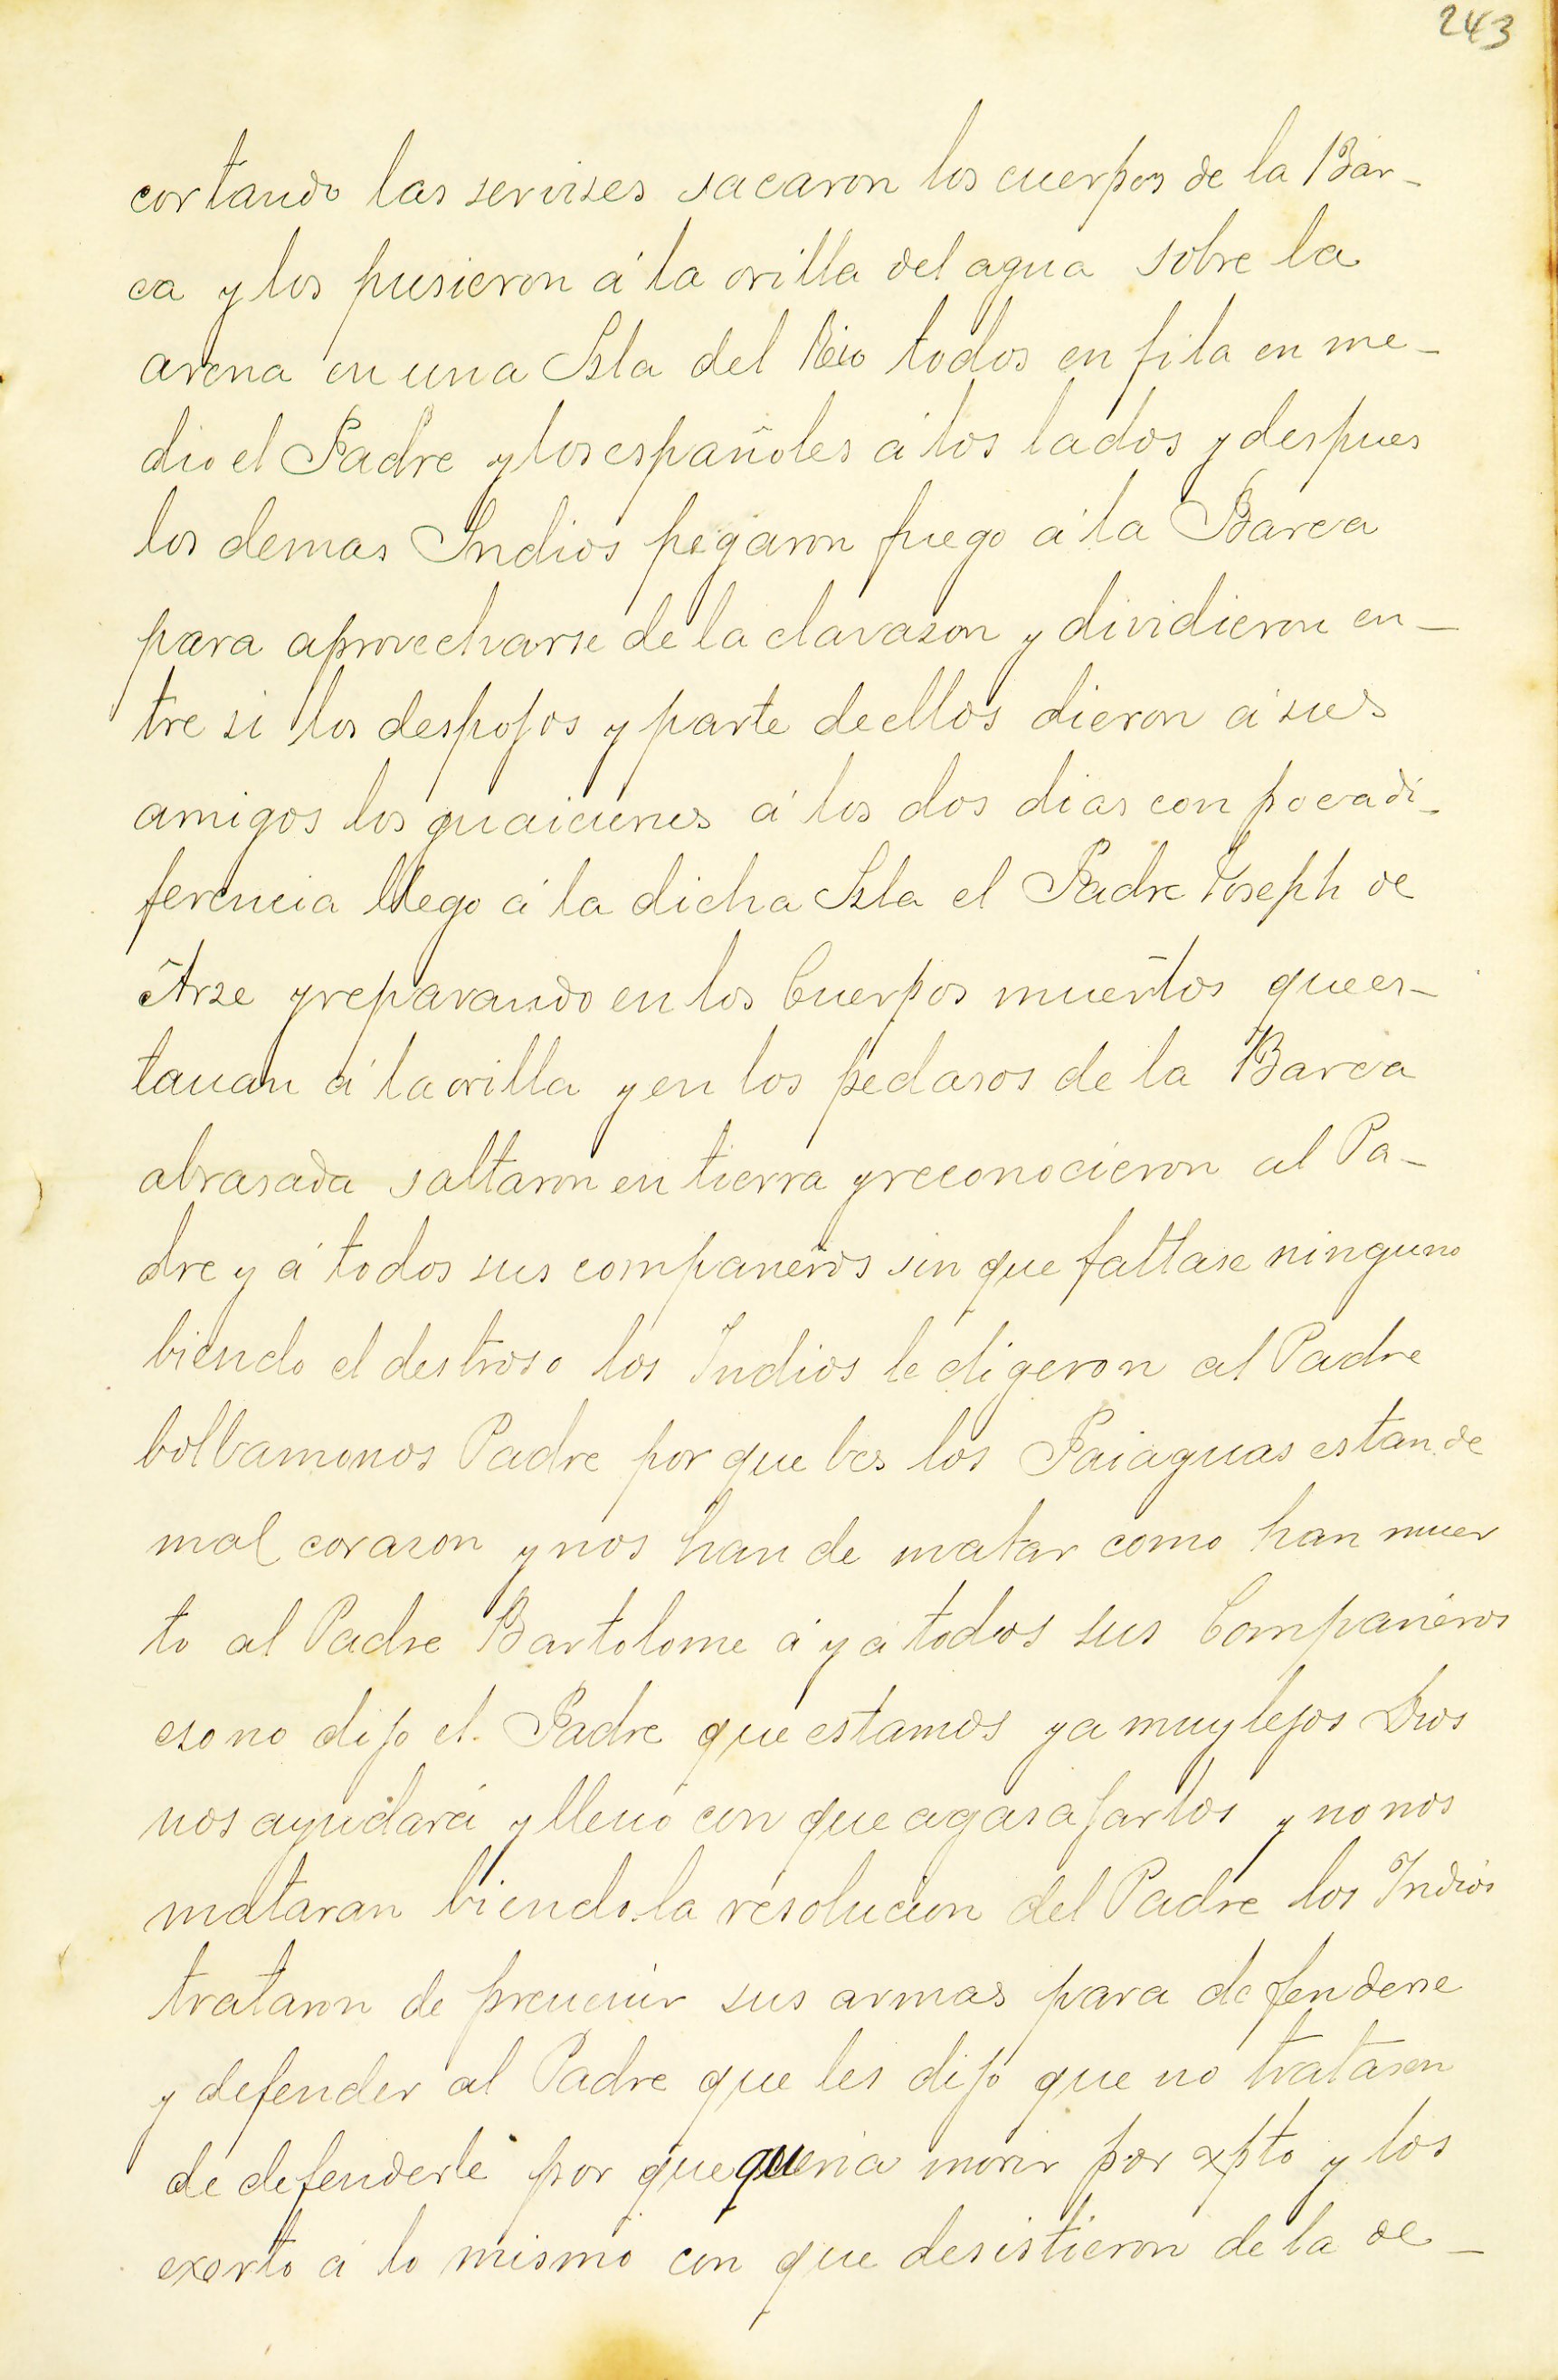 243
cortando las servises sacaron los cuerpos de la Bar-
ca y los pusieron á la orilla del agua sobre la
arena en una Isla del Rio todos en fila en me-
dio el Padre y los españoles á los lados y despues
los demas Indios pegaron fuego á la Barca
para aprovecharse de la clavason y dividieron en-
tre si los despojos y parte de ellos dieron á sus
amigos los guaicurus á los dos dias con poca di-
ferencia llego á la dicha Isla el Padre Joseph de
Arze y reparando en los Cuerpos muertos que es-
tauan á la orilla y en los pedasos de la Barca
abrasada saltaron en tierra y reconocieron al Pa-
dre y á todos sus compañeros sin que faltase ninguno
biendo el destroso los Indios le digeron al Padre
bolbamonos Padre por que bes los Paiaguas estan de
mal corason y nos han de matar como han muer
to al Padre Bartolome á y á todos sus Compañeros
eso no dijo el Padre que estamos ya muy lejos Dios
nos ayudará y lleuo con que agasajarlos y no nos
mataran biendo la resolucion del Padre los Indios
trataron de preuenir sus armas para defenderse
y defender al Padre que les dijo que no tratasen
de defenderle por que queria morir por xpto y los
exorto á lo mismo con que desistieron de la de-